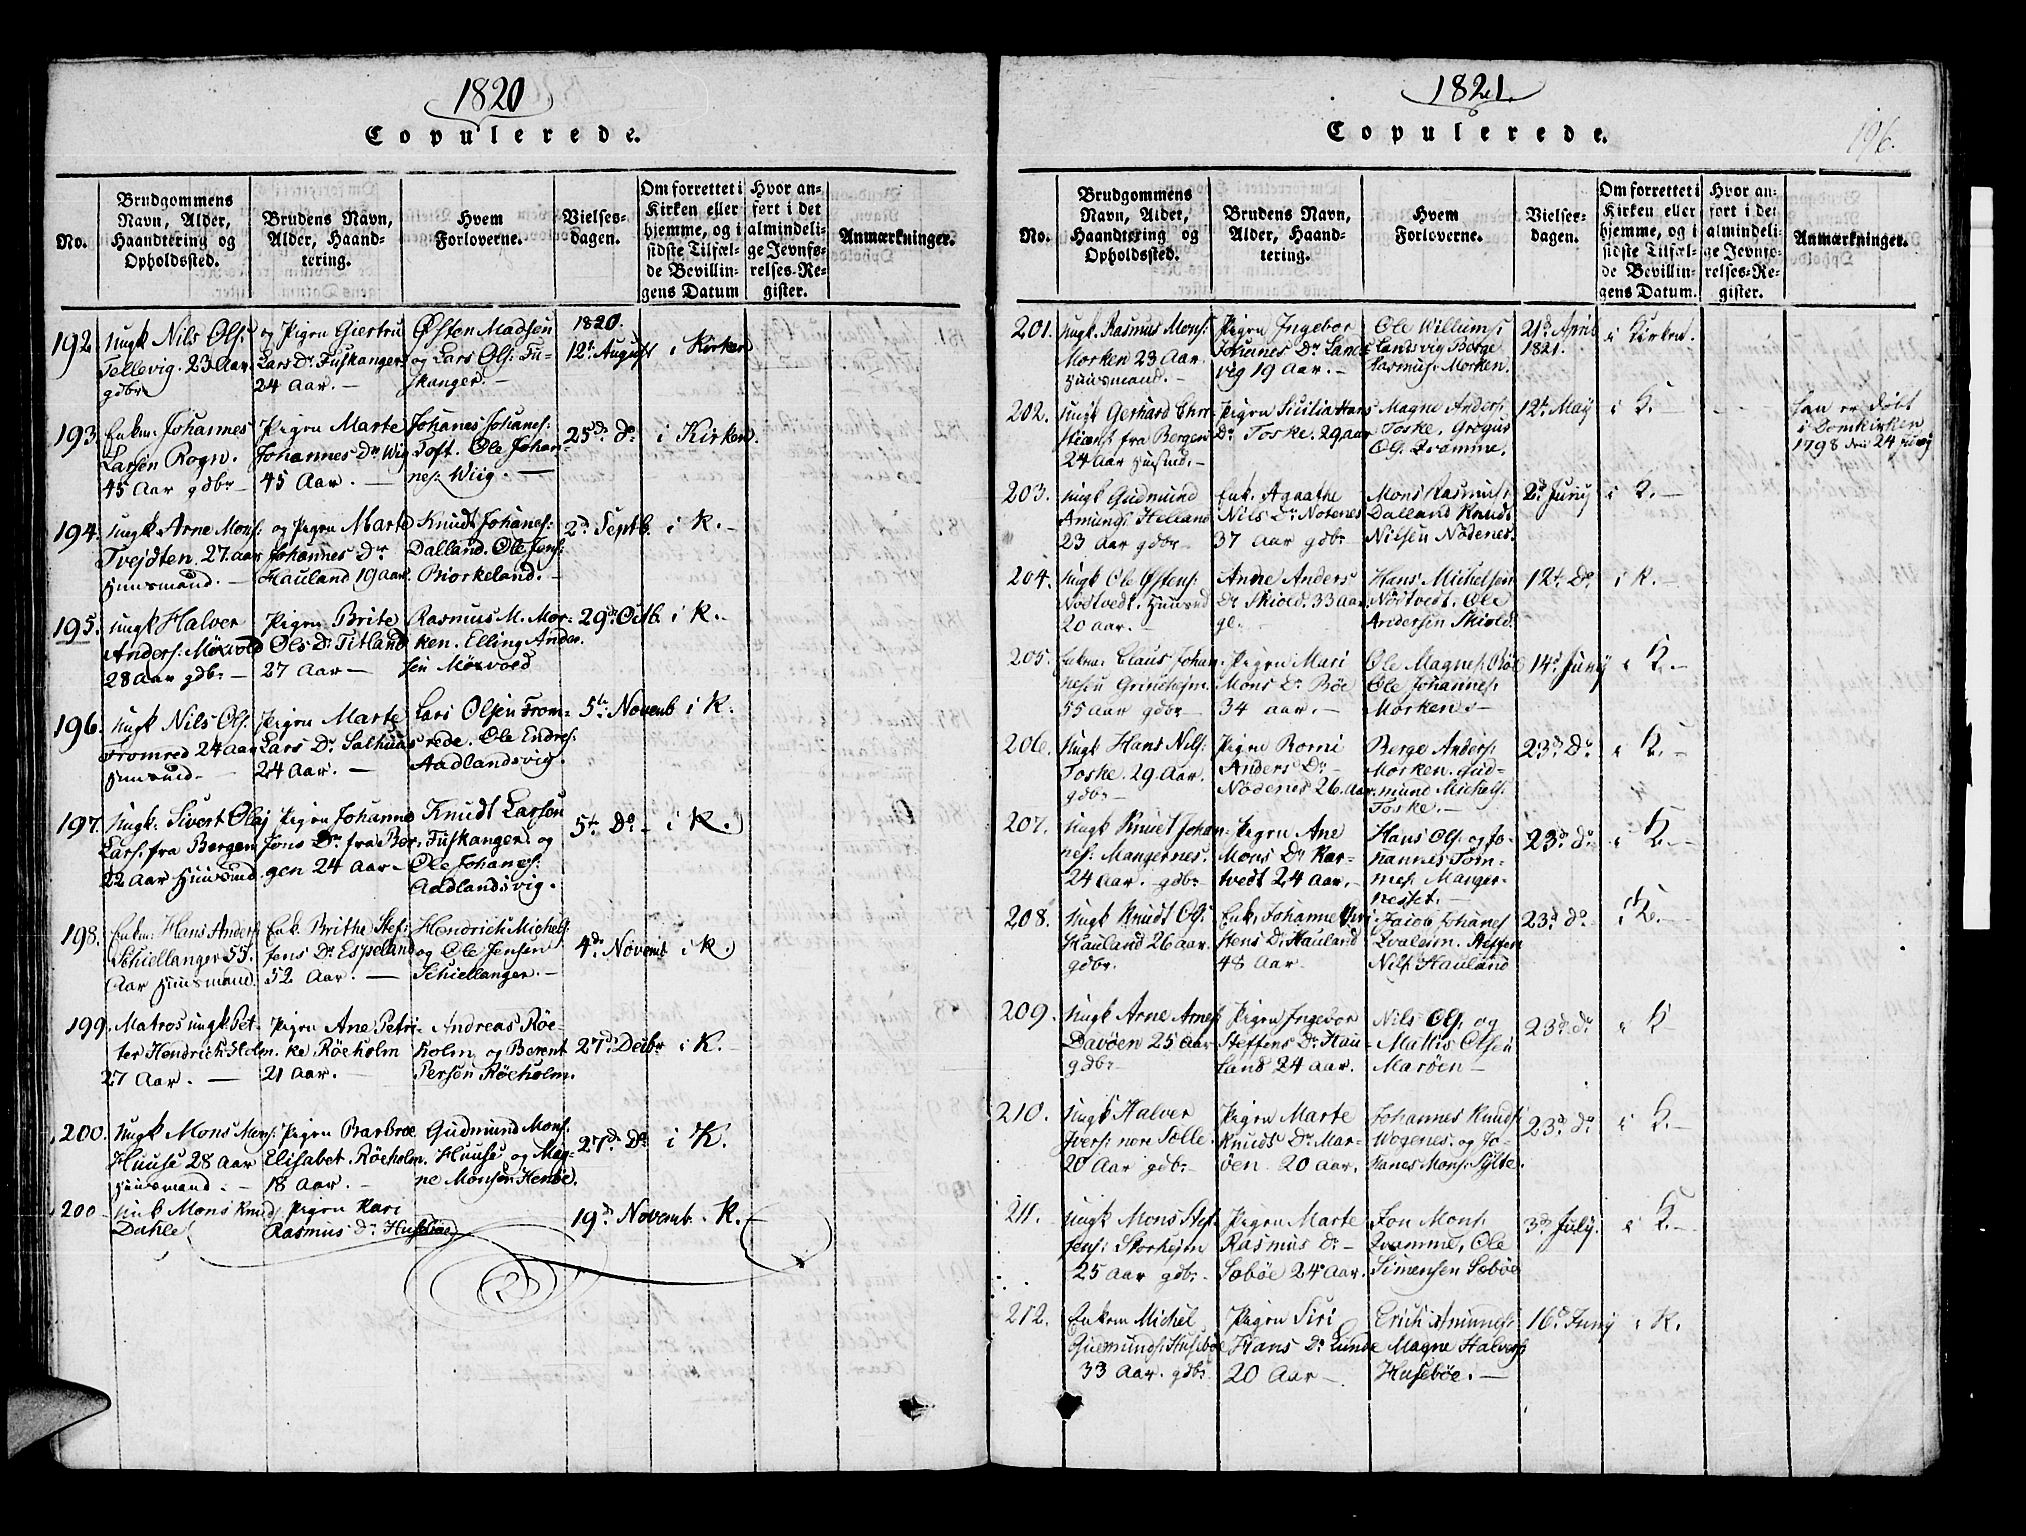 1820
Copulerede.
No.
Brudgommens
Navn, Alder,
Haandtering og
Opholdssted.
Brudens Navn,
Alder, Haand-
tering.
Hvem
Forloverne.
Vielses-
dagen.
Om forrettet i
Kirken eller
hjemme, og i
sidste Tilfæl-
de Bevillin-
gens Datum
Hvor an-
ført i det
almindeli-
ge Jevnfø-
relses-Re-
gister.
Anmærkninger.
192
ungk Nils Ols:
Tellevig. 23 Aar.
gdbr
og Pigen Giertru
Lars Dr Fuskanger
24 Aar. —
Østen Madsen
og Lars Ols: Fu-
skanger. —
1820.
12t August
i Kirken
193.
Enkm: Johannes
Larsen Rogn.
45 Aar gdbr
Pigen Marte
Johannes Dr Wig
45 Aar. —
Johanes Johanes:
Toft. Ole Johan-
nes: Wiig —
25d do
i Kirken.
194.
ungk Arne Mons:
Tvejdten. 27. aar
Huusmand. —
og Pigen Marte
Johannes Dr
Hauland 19 aar.
Knudt Johanes:
Dalland. Ole Jens:
Biorkeland. —
2d Septb.
i K. —
195.
ungk Halver
Anders: Mørvold
28 Aar gdbr —
Pigen Brite
Ols Dr Titland
27 Aar —
Rasmus M. Mor-
ken. Elling Ander-
sen Mørvold
29de Octb.
i K. —
196.
ungk Nils Ols:
Fromred 24 aar
Huusmd. —
Pigen Marte
Lars Dr Salhuus
24 Aar. —
Lars Olsen From-
rede. Ole Endres:
Aadlandsvig.
5te Novemb
i K.
197.
ungk: Sivert Olaj
Lars: fra Bergen
22 Aar Huusmd.
Pigen Johanne
Jons Dr fra Ber-
gen 24 Aar —
Knudt Larsen
Fuskanger. og
Ole Johanes:
Aadlandsvig.
5te Do
i K.
198.
Enkm: Hans Anders:
Schiellanger 55.
Aar Huusmand.
Enk. Brithe Stef-
fens Dr Espeland
52 Aar. —
Hendrich Michels:
og Ole Jensen
Schiellanger. —
4de Novemb
i K
199.
Matros ungk Pet-
ter Hendrich Holm.
27 Aar. —
Pigen Ane Petri-
ke Røeholm
21 Aar. —
Andreas Røe-
holm og Berent
Persen Røeholm.
27d Decbr
i K. —
200.
ungk Mons Mons:
Huuse 28 Aar
Huusmand. —
Pigen Barbroe
Elisabet. Røeholm.
18 Aar. —
Gudmund Mons:
Huuse og Mag-
ne Monsen Henøe.
27d Do
i K.
200
unk Mons Knud
Dahle
Pigen Kari
Rasmus Dr Husebøe
19d Novemb.
K.
1821.
Copulerede.
196.
No.
Brudgommens
Navn, Alder,
Haandtering og
Opholdssted.
Brudens Navn,
Alder, Haand-
tering.
Hvem
Forloverne.
Vielses-
dagen.
Om forrettet i
Kirken eller
hjemme, og i
sidste Tilfæl-
de Bevillin-
gens Datum.
Hvor an-
ført i det
almindeli-
ge Jevnfø-
relses-Re-
gister.
Anmærkninger.
201.
ungk. Rasmus Mons:
Morken 23 Aar.
Huusmand. —
Pigen Ingebor
Johannes Dr Lands
vig 19 Aar. —
Ole Willums:
Landsvig Berge
Rasmus: Morken.
21d April
1821.
i Kirken.
202.
ungk Gerhard Chri-
fra Bergen
24 Aar Huusmd. —
Pigen Sicilia Hans
Dr Toske. 29 aar
Magne Anders:
Toske, Gregus
Ols. Qvamme.
12t May
i K. —
han er døbt
i Domkirken
1798 den 24 Juny
203.
ungk Gudmund
Amunds: Helland
23 Aar gdbr —
Enk. Agaathe
Nils Dr Nøtenes
37 Aar gdbr
Mons Rasmus:
Dalland Knudt
Nilsen Nødenes.
2d Juny
i K. —
204.
ungk Ole Østens:
Nødtvedt. Huusmd
20 aar. —
Anne Anders
Dr Skiold. 33 aar
gl. —
Hans Michelsen
Nødtvedt. Ole
Andersen Skiold.
12t Do
i K. —
205.
Enkm: Claus Johan-
nesen Grindheim.
55 aar gdbr —
Pigen Mari
Mons Dr Bøe
34 aar. —
Ole Magnes: Bøe
Ole Johannes:
Morken —
14d Juny
i K. —
206.
ungk Hans Nils:
Toske. 29. Aar.
gdbr —
Pigen Romi
Anders Dr —
Nødenes 26. aar.
Berge Anders:
Morken. Gud-
mund Michels:
Toske. —
23d Do
i K. —
207.
ungk Knuet Johan-
nes: Mangernes.
24 Aar. gdbr
Pigen Ane
Mons Dr Kar-
tvedt 24 Aar. —
Hans Ols: og Jo-
hannes Torn-
mes: Manger-
nesset. —
23d do
i K. —
208.
ungk Knudt Ols:
Hauland 26 aar.
gdbr.
Enk. Johanne Chri-
stens Dr Hauland
48 Aar.
Jacob Johanes
Qvaleim. Steffen
Nils: Hauland
23d do
i K. —
209.
ungk Arne Arnes:
Davøen 25 Aar
gdbr
Pigen Ingebor
Steffens Dr Hau-
land 24 aar.
Nils Ols: og
Mattis Olsen
Marøen —
23d do
i K
210.
ungk Halver
Ivers: nore Solle.
20 Aar gdbr —
Pigen Marte
Knudt Dr Mar-
øen. 20 aar.
Johannes Knudts:
Wogenes. og Jo-
hanes Mons: Sylte.
23d do
i K. —
211.
ungk Mons Stef-
fens: Storhejm
25 aar gdbr —
Pigen Marte
Rasmus Dr —
Sæbøe 24 Aar.
Jon Mons:
Qvamme, Ole
Simensen Sæbøe
3d July.
i K. —
212.
Enkem Michel
Gudmunds: Husebøe
33 Aar. gdbr.
Pigen Siri
Hans Dr Lunde
20 Aar —
Erich Amunds:
Magne Halvers:
Husebøe. —
16d Juny
i K.